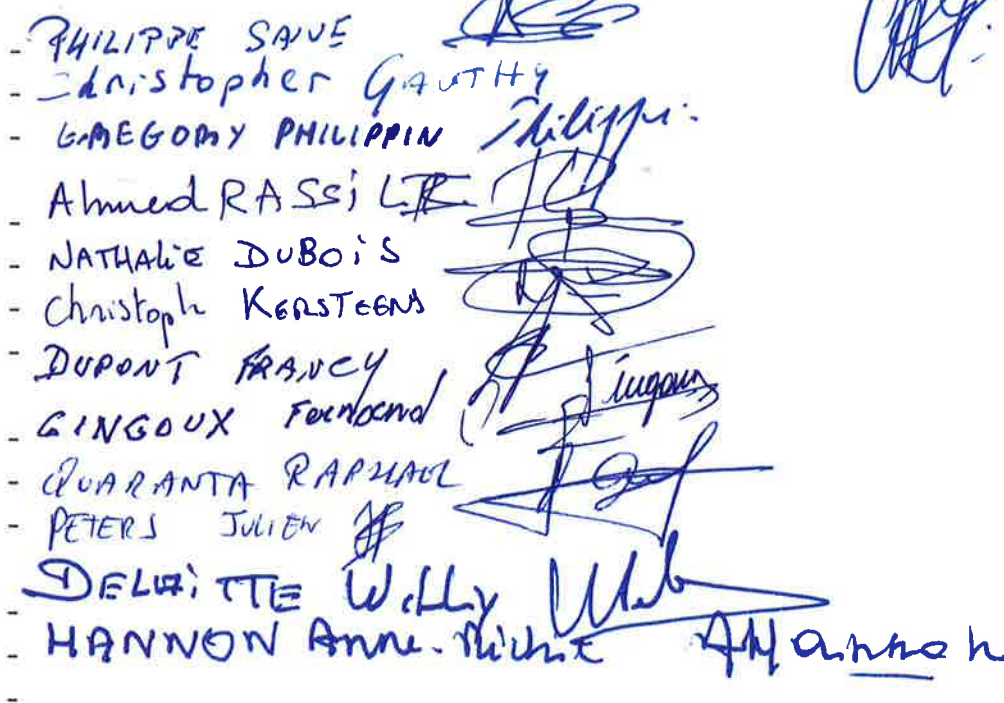 - PHILIPPE SAUVE
- Christopher GAUTHY
- GREGORY PHILIPPIN Philippi.
- Ahmed RASSi
- NATHALiE DUBOiS
- Christoph KERSTEENS
- DUPONT FRANCY
- GINGOUX Fernand Gingoux
- QUARANTA RAPHAEL
- PETERS JULIEN
- DELWiTTE Willy
- HANNON Anne-Michèle AMHannon
-